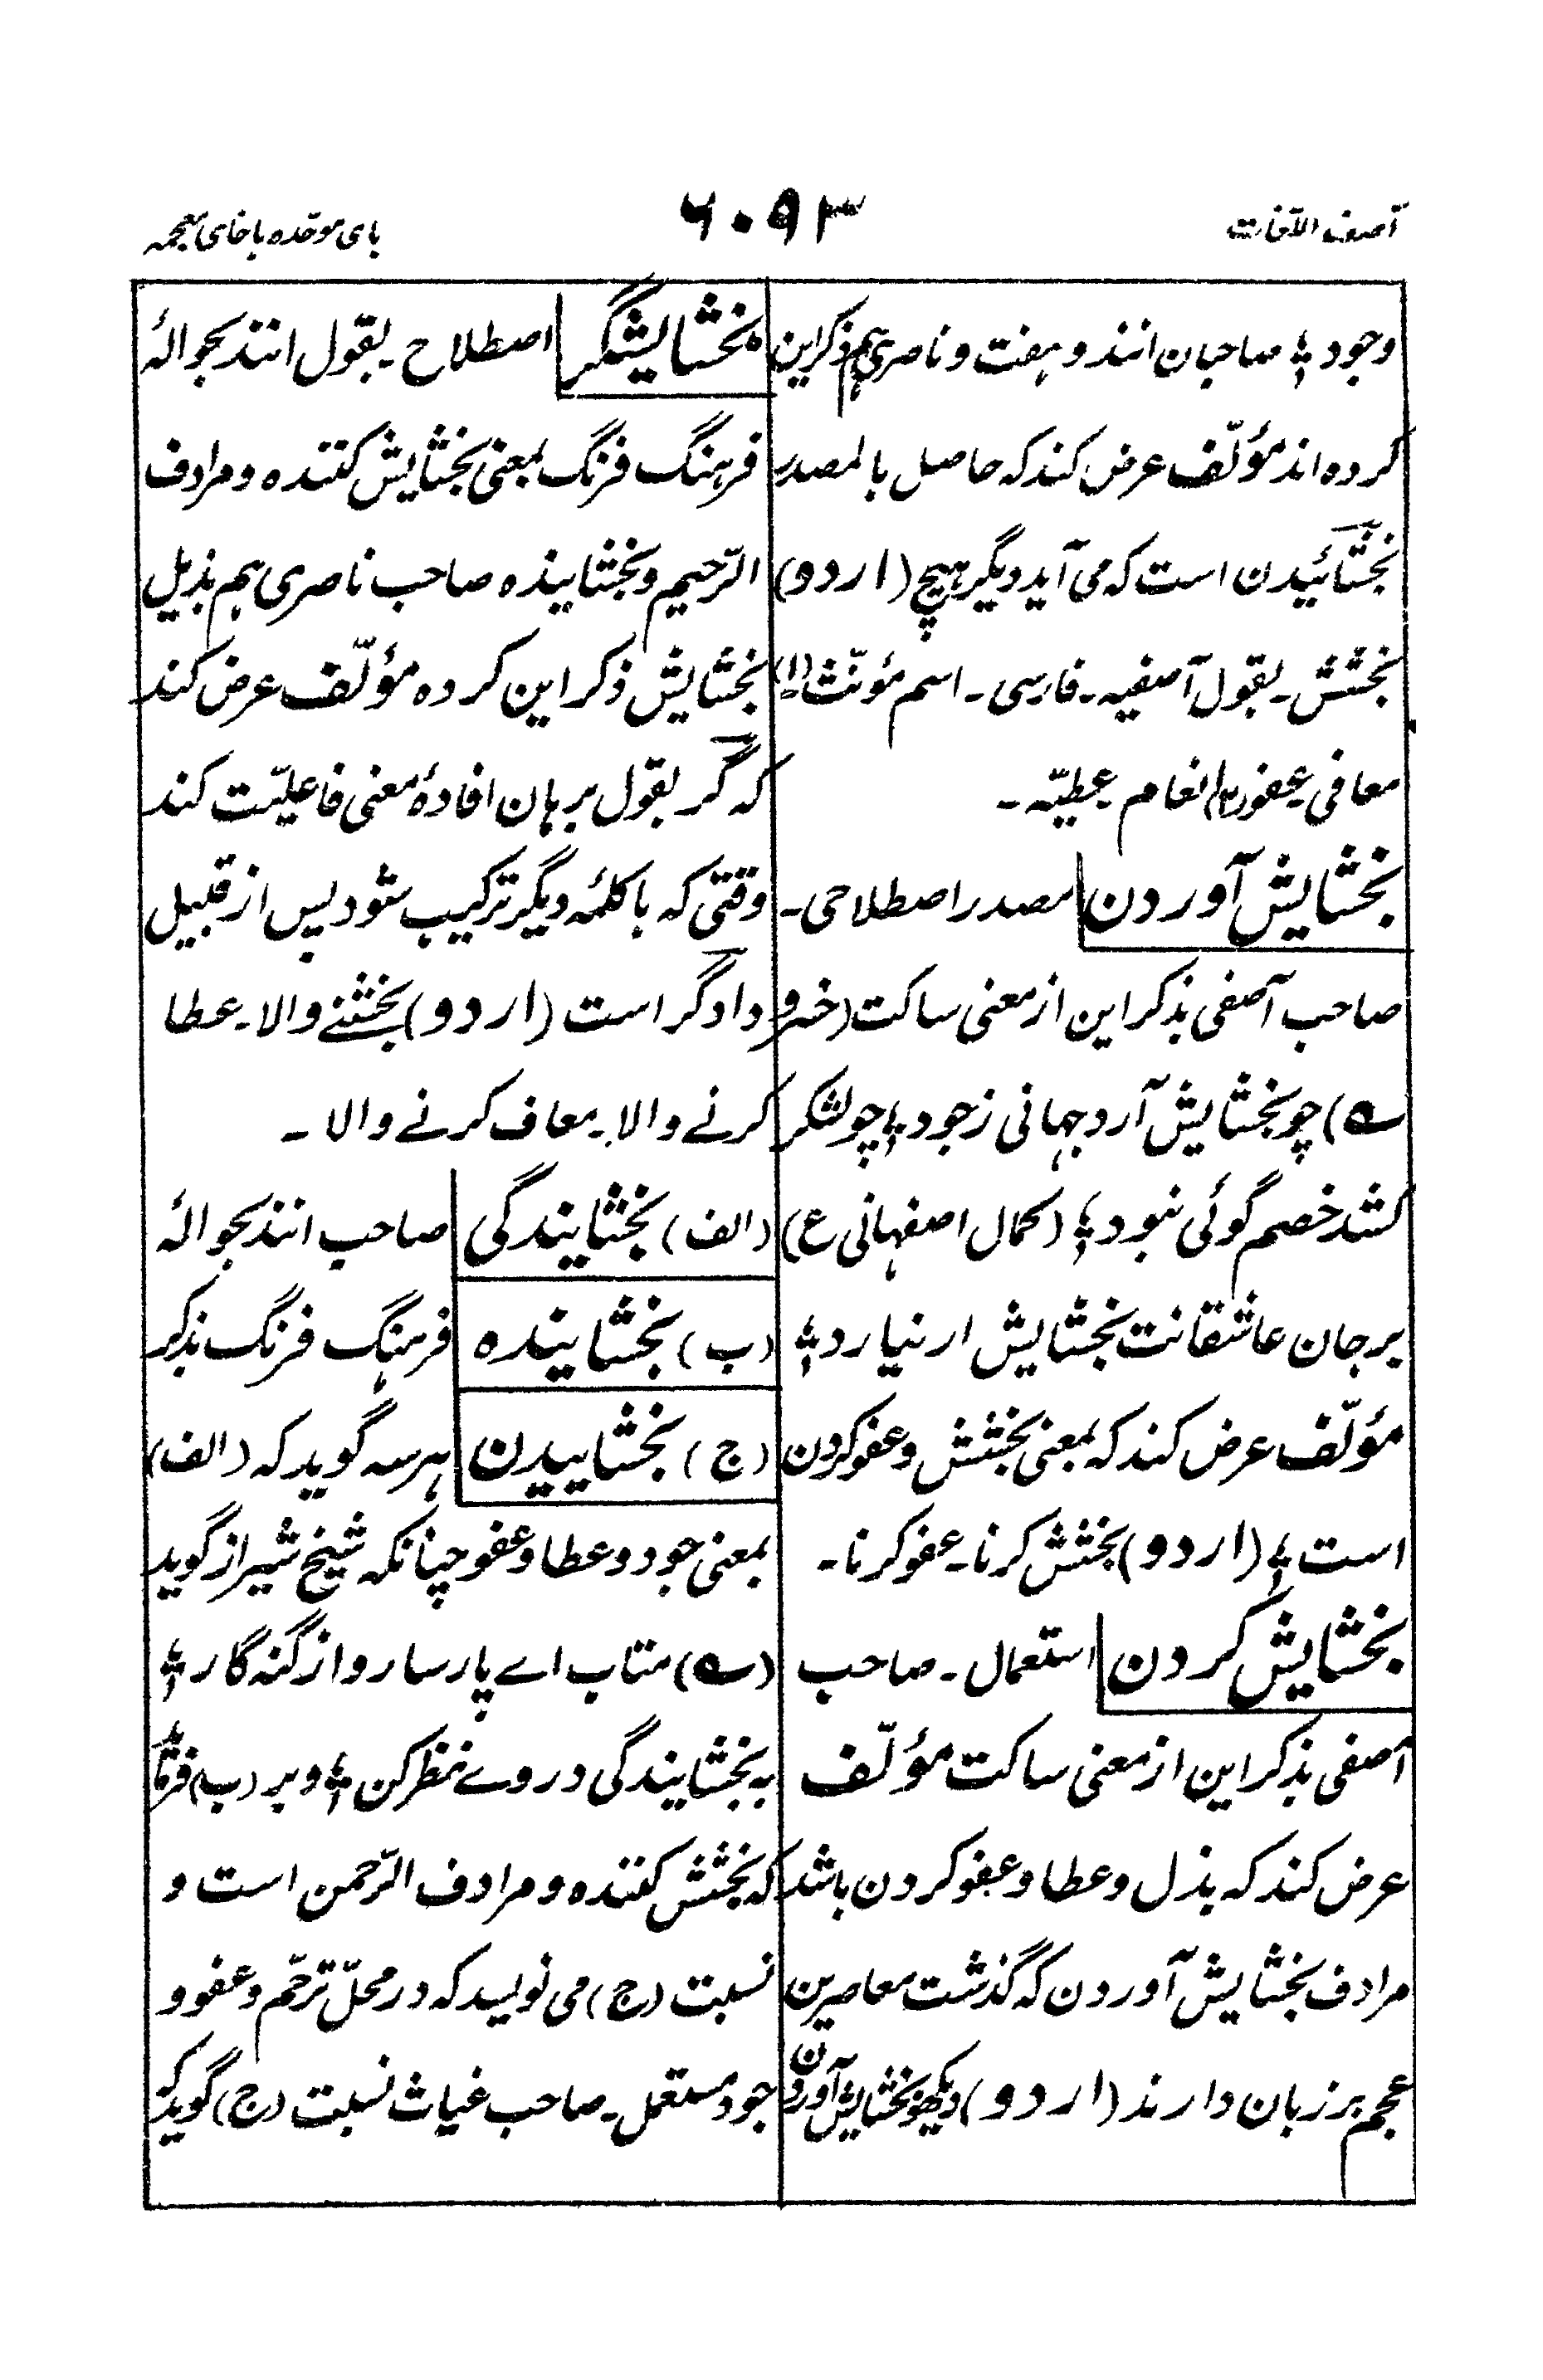 آصف اللّغات
۶۰۹۳
بای موحّده با خای معجمہ
وجود ؛ صاحبان انند و ہفت و ناصری ہم ذکر این
کردہ اند مؤلّف عرض کند کہ حاصل بالمصدر
بخشائیدن است کہ می آید دیگر ہیچ (اردو)
بخشش ۔ بقول آصفیہ ۔ فارسی ۔ اسم مؤنّث (۱)
معافی عفو (۲) انعام عطیّہ ۔
بخشایش آوردن مصدر اصطلاحی ۔
صاحب آصفی بذکر این از معنی ساکت (خسرو
؎) چو بخشایش آرد جہانی زجود ؛ چو لشکر
کشد خصم گوئی نبود ؛ (کمال اصفہانی ع)
بر جان عاشقانت بخشایش ار نیارد ؛
مؤلّف عرض کند کہ بمعنی بخشش و عفو کردن
است ؛ (اردو) بخشش کرنا ۔ عفو کرنا ۔
بخشایش کردن استعمال ۔ صاحب
آصفی بذکر این از معنی ساکت مؤلّف
عرض کند کہ بذل و عطا و عفو کردن باشد
مرادف بخشایش آوردن کہ گذشت معاصرین
عجم بر زبان دارند (اردو) دیکھو بخشایش آوردن
بخشایشگر اصطلاح ۔ بقول انند بحوالۂ
فرہنگ فرنگ بمعنی بخشایش کنندہ و مرادف
الرّحیم و بخشایندہ صاحب ناصری ہم بذیل
بخشایش ذکر این کردہ مؤلّف عرض کند
کہ گر بقول برہان افادۂ معنی فاعلیّت کند
وقتی کہ با کلمۂ دیگر ترکیب شود پس از قبیل
دادگر است (اردو) بخشنے والا ۔ عطا
کرنے والا ۔ معاف کرنے والا ۔
(الف) بخشایندگی صاحب انند بحوالۂ
(ب) بخشایندہ فرہنگ فرنگ بذکر
(ج) بخشاییدن ہر سہ گوید کہ (الف)
بمعنی جود و عطا و عفو چنانکہ شیخ شیراز گوید
(؎) متاب اے پارسا رو از گنہ گار ؛
بہ بخشایندگی در وے نظر کن ؛ و بر (ب) فرماید
کہ بخشش کنندہ و مرادف الرّحمن است و
نسبت (ج) می نویسد کہ در محلّ ترحّم و عفو و
جود مستعمل ۔ صاحب غیاث نسبت (ج) گوید کہ